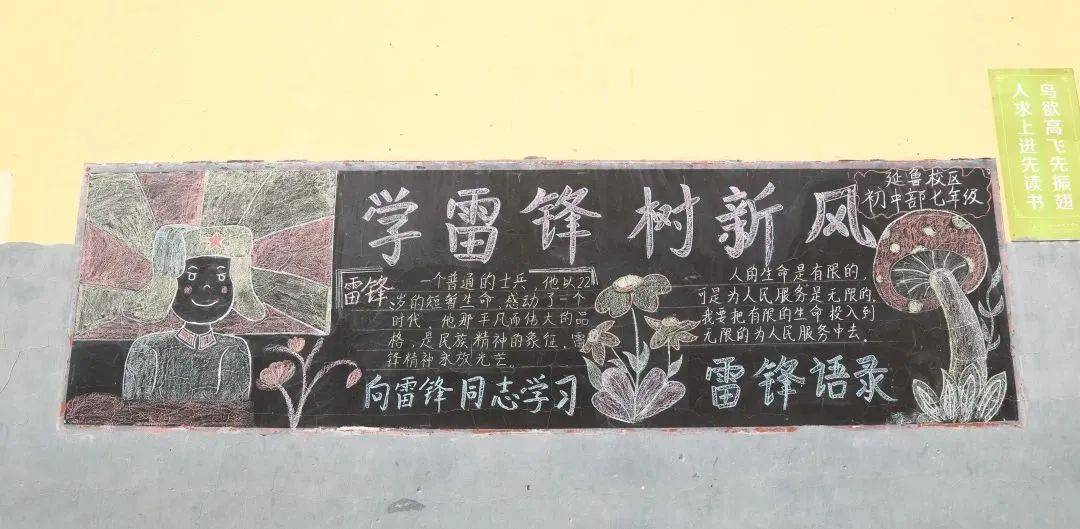 学雷锋 树新风
延鲁校区
初中部七年级
雷锋
一个普通的士兵，他以22
岁的短暂生命，感动了一个
时代，他那平凡而伟大的品
格，是民族精神的象征，雷
锋精神永放光芒。
向雷锋同志学习
人的生命是有限的，
可是为人民服务是无限的，
我要把有限的生命投入到
无限的为人民服务中去。
雷锋语录
鸟欲高飞先振翅
人求上进先读书